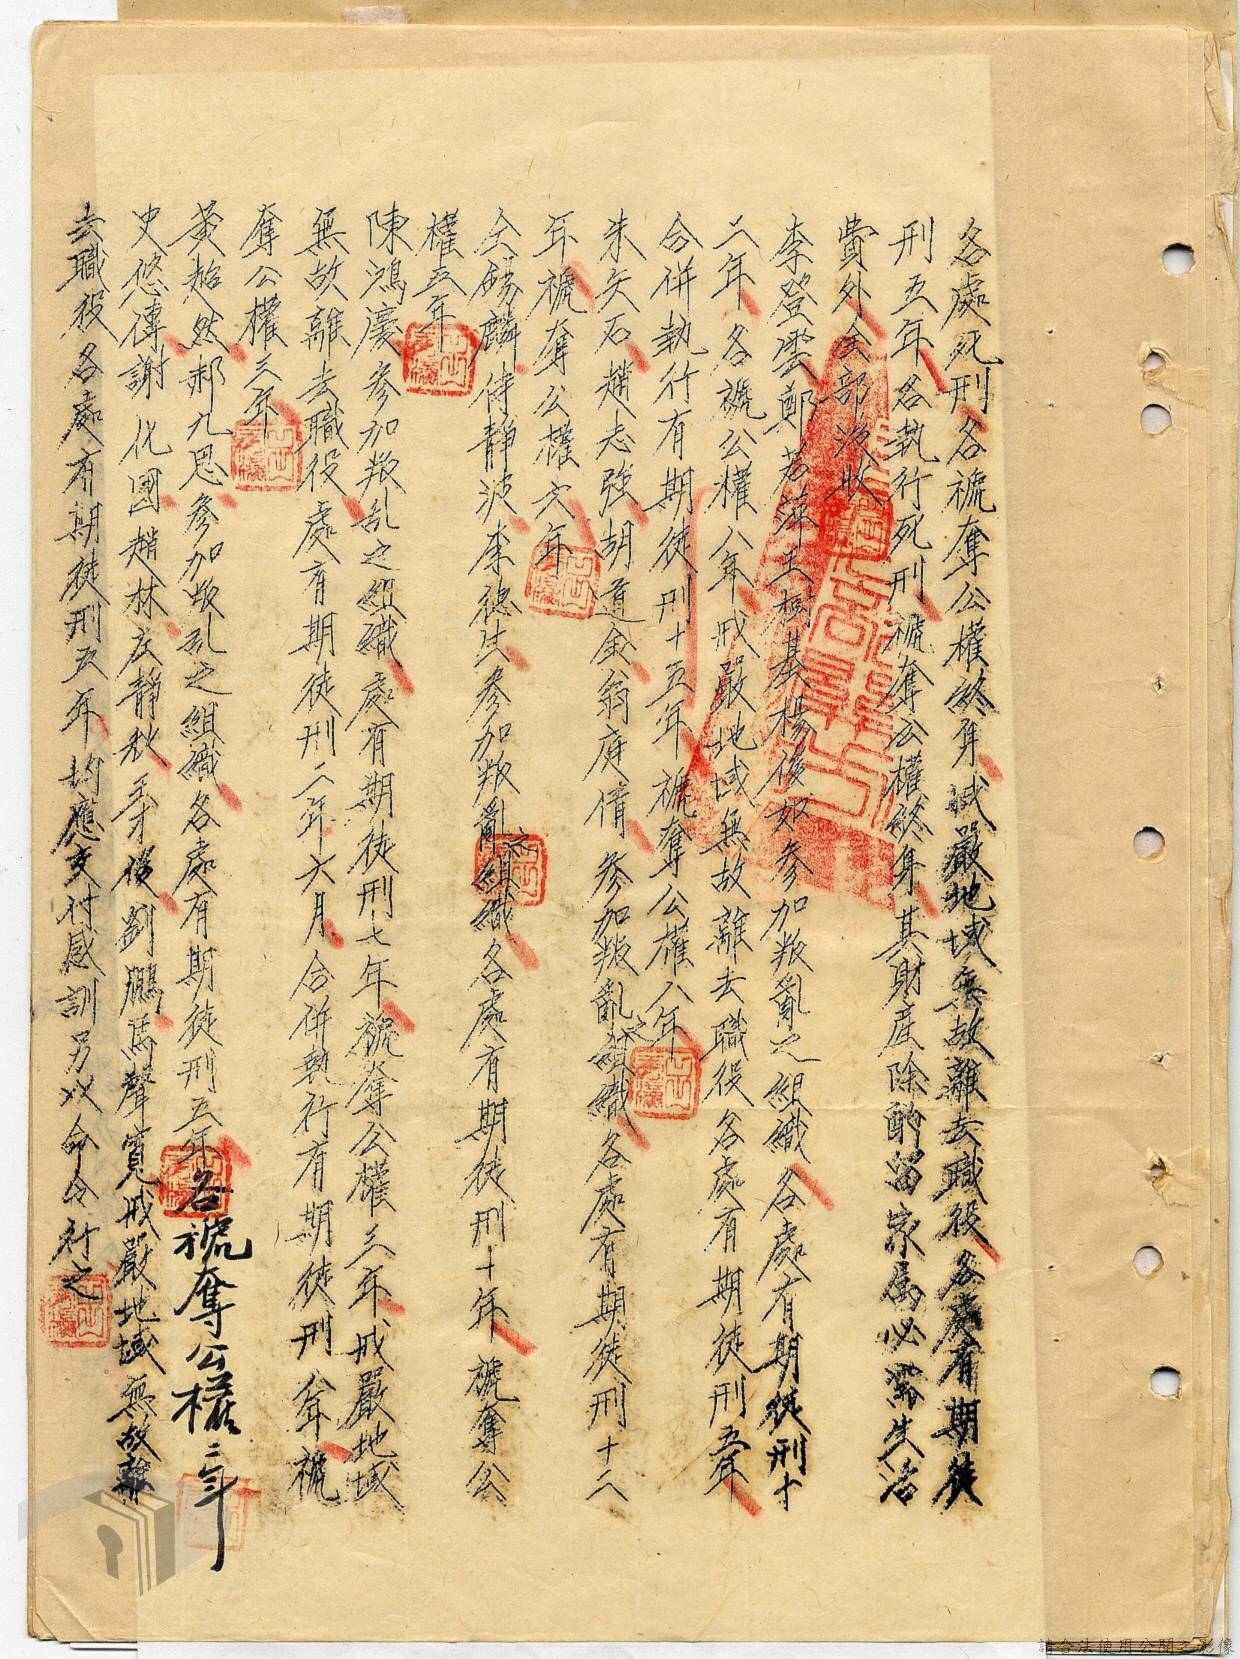 各處死刑各褫奪公權終身戒嚴地域無故離去職役各處有期徒
刑五年各執行死刑褫奪公權終身其財產除酌留家属必需生活
費外全部沒收
李登雲鄭若萍王樹基楊俊如參加叛亂之組織各處有期徒刑十
二年各褫公權八年戒嚴地域無故離去職役各處有期徒刑五年
合併執行有期徒刑十五年褫奪公權八年
朱矢石趙志強胡道金翁庭倩參加叛亂之組織各處有期徒刑十二
年褫奪公權六年
仝錫麟侍靜波李德生參加叛亂之組織各處有期徒刑十年褫奪公
權五年
陳鴻慶參加叛乱之組織處有期徒刑七年褫奪公權三年戒嚴地域
無故離去職役處有期徒刑二年六月合併執行有期徒刑八年褫
奪公權三年
黃超然郝九思參加叛乱之組織各處有期徒刑五年各褫奪公權三年
史悠傳謝化國趙林庄靜秋俊劉鵬馬聲寬戒嚴地域無故離
去職役各處有期徒刑五年均應交付感訓另以命令行之
請合法使用公開之影像